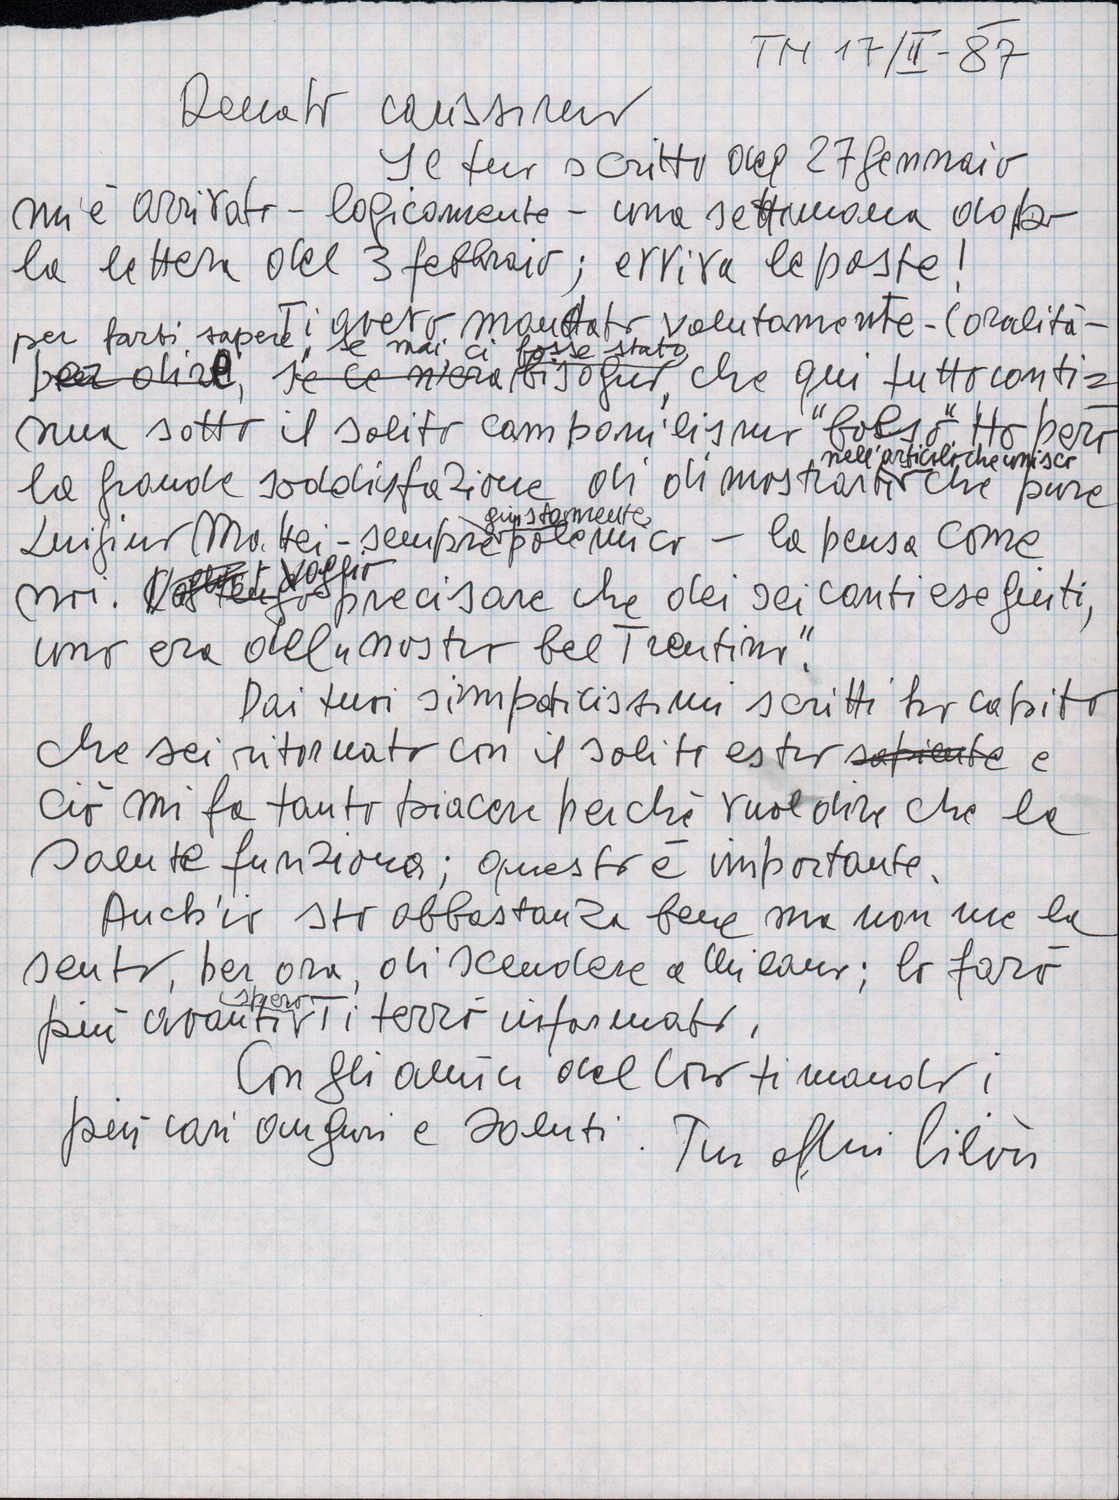 TN 17/II-87
Renato carissimo
Il tuo scritto del 27 Gennaio
mi è arrivato - logicamente - una settimana dopo
la lettera del 3 febbraio; evviva le poste!
Ti avevo mandato volutamente - Coralità -
per farti sapere, se mai ci fosse stato
per dire, se ce n'era bisogno, che qui tutto conti=
nua sotto il solito campanilismo "bolso". Ho però
nell'articolo che unisco
la grande soddisfazione di dimostrarti che pure
giustamente
Luigino Mattei - sempre polemico - la pensa come
voglio
noi. precisare che dei sei canti eseguiti,
uno era del "nostro bel Trentino".
Dai tuoi simpaticissimi scritti ho capito
che sei ritornato con il solito estro sapiente e
ciò mi fa tanto piacere perché vuol dire che la
salute funziona; questo è importante.
Anch'io sto abbastanza bene ma non me la
sento, per ora, di scendere a Milano; lo farò
spero
più avanti. Ti terrò informato.
Con gli amici del Coro ti mando i
più cari auguri e saluti. Tuo aff.mo